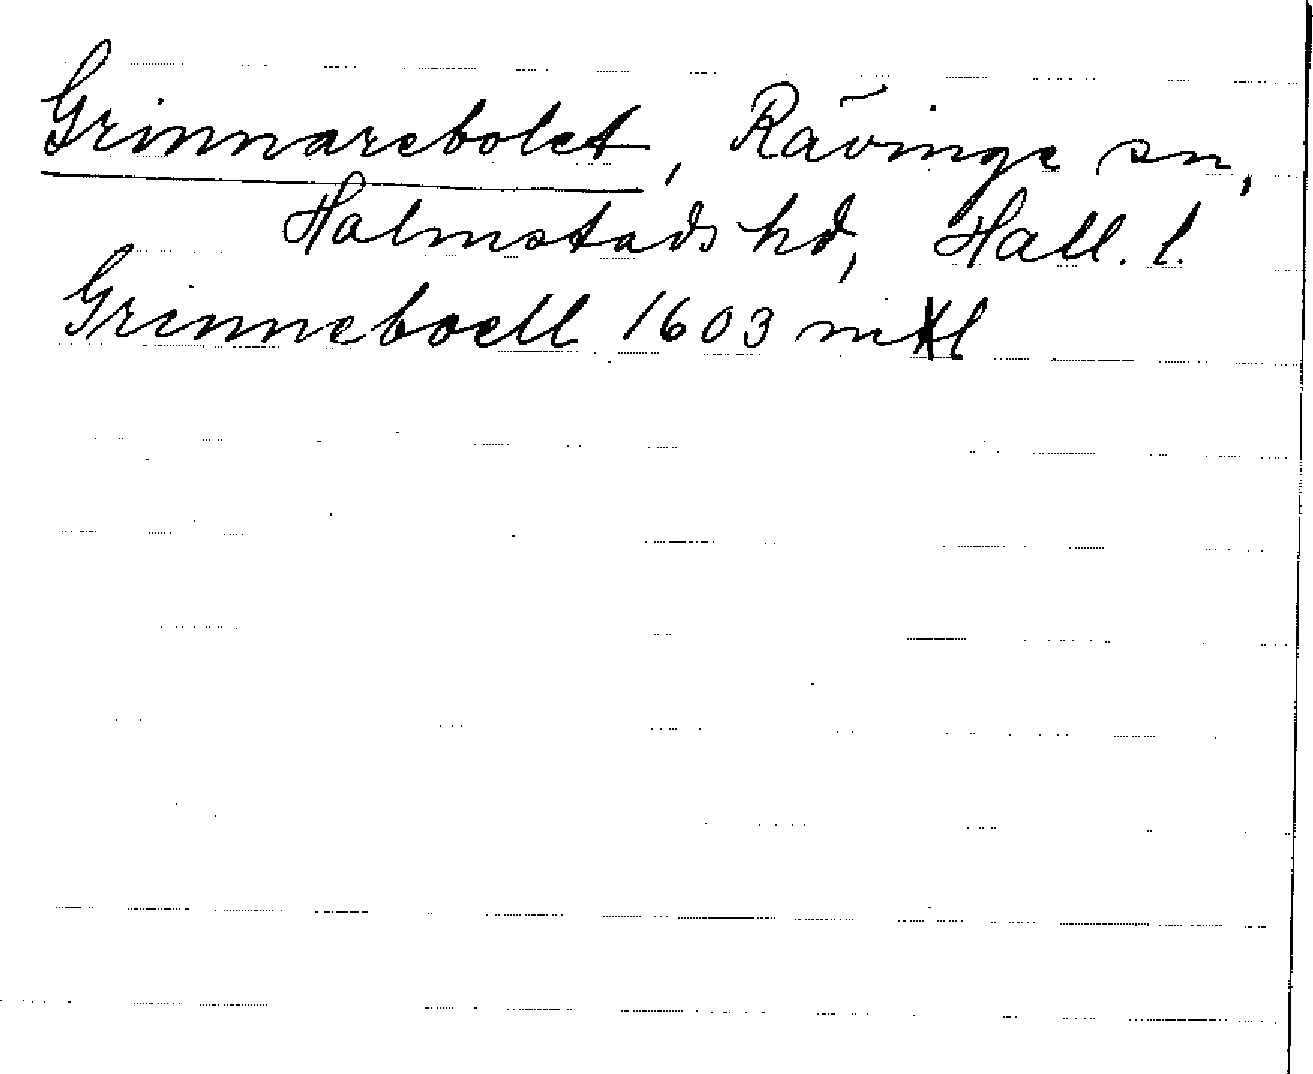 Grinnarebolet, Rävinge sn,
Halmstads hd, Hall. l.
Grinneboell 1603 mkl